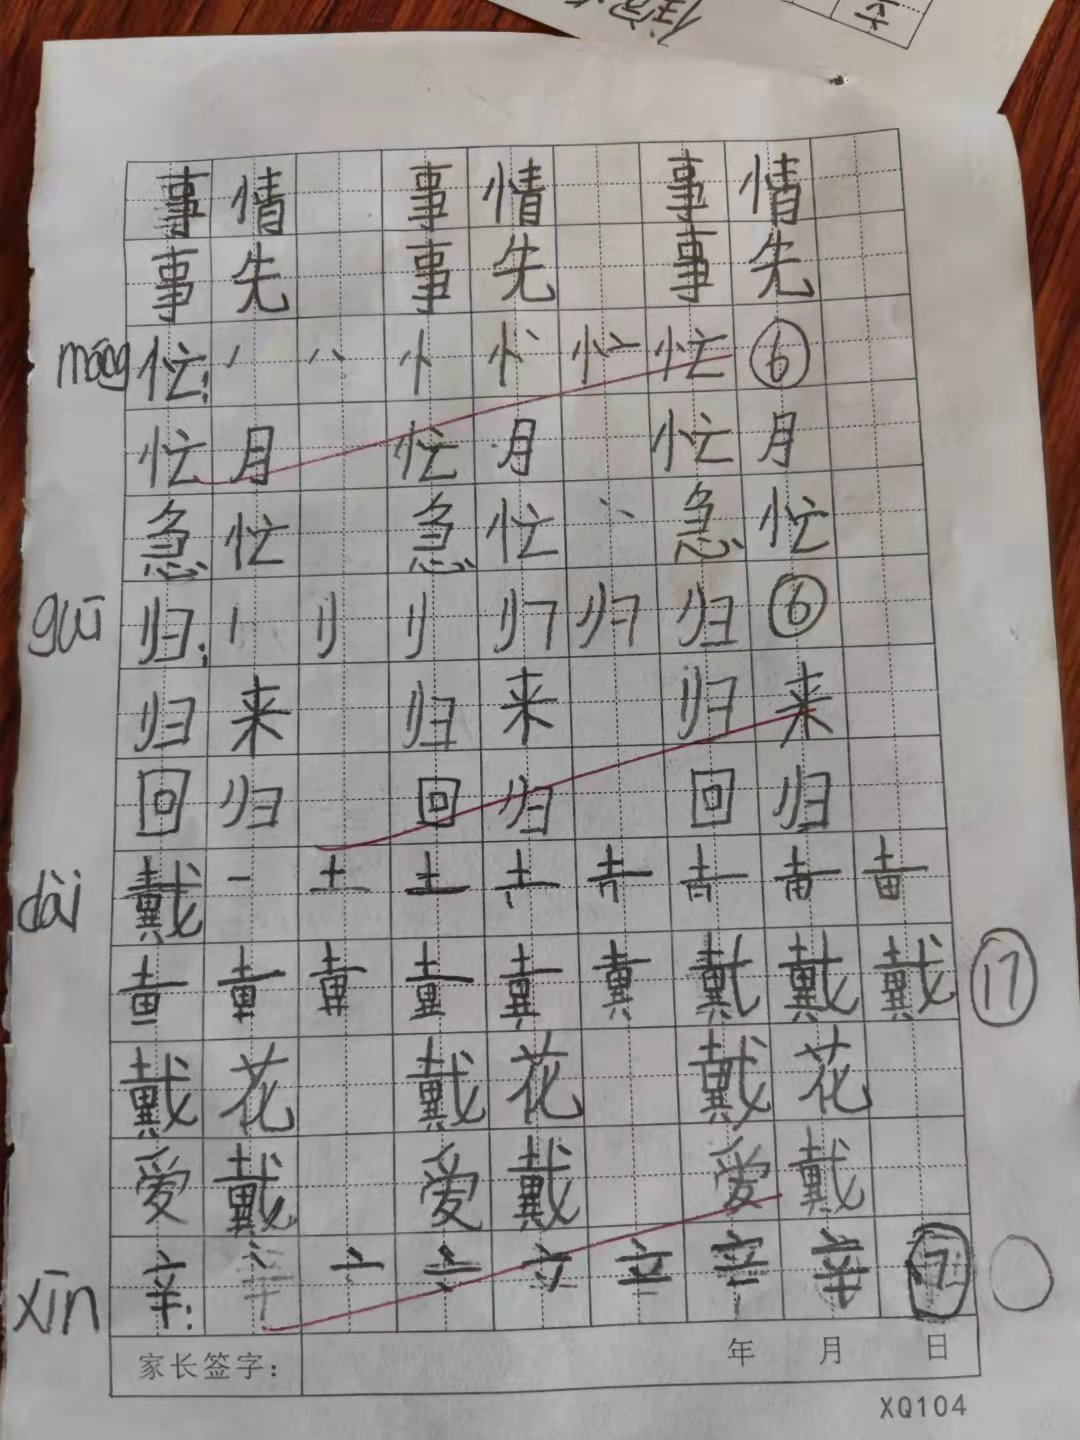 事情 事情 事情
事先 事先 事先
máng 忙: 丶 丷 忄 忄 忙 忙 ⑥
忙月 忙月 忙月
急忙 急忙 急忙
guī 归: 丨 刂 刂 归 归 归 ⑥
归来 归来 归来
回归 回归 回归
dài 戴 一 土 土
戴 戴 戴 ⑰
戴花 戴花 戴花
爱戴 爱戴 爱戴
xīn 辛: 亠 立 辛 辛 7
家长签字: 年 月 日
XQ104